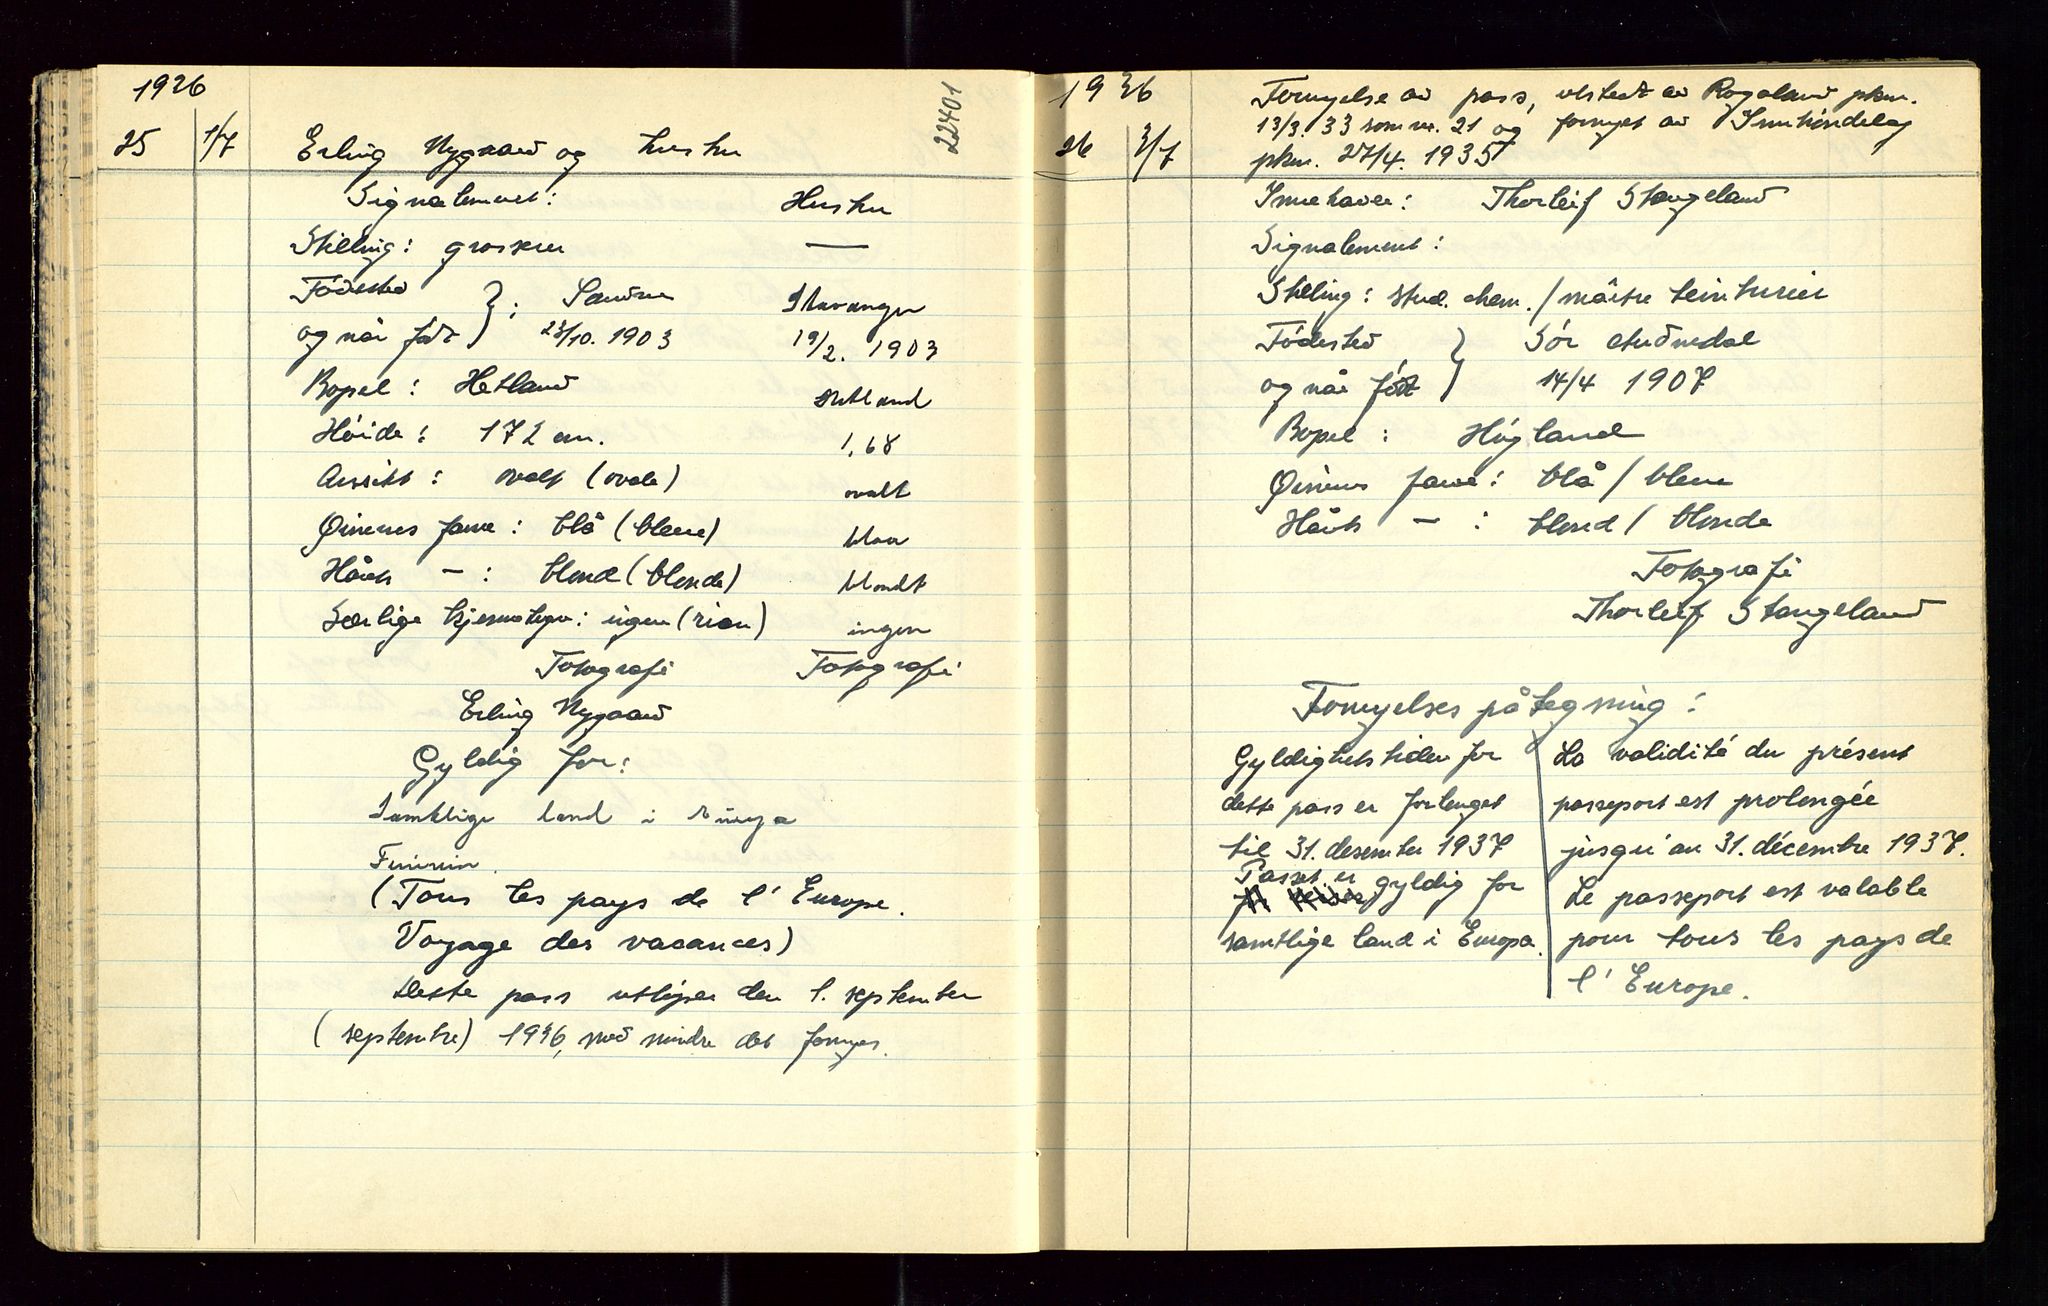 1926
22401
25 1/7 Erling Nygaard og hustru
Signalement: Hustru
Stilling: grosserer —
Fødested } : Sandnes Stavanger
og når født 23/10. 1903 19/2. 1903
Bopel: Hetland Hetland
Høide: 172 cm. 1,68
Ansikt: ovalt (ovale) ovalt
Øinenes farve: blå (bleue) blaa
Hårets — : blond (blonde) blondt
Særlige kjennetegn: ingen (rien) ingen
Fotografi Fotografi
Erling Nygaard
Gyldig for:
Samtlige land i Europa
Ferierein.
(Tous les pays de l'Europe.
Voyage des vacances)
Dette pass utløper den 1. september
(septembre) 1936, med mindre det fornyes.
1936
Fornyelse av pass, utstedt av Rogaland pkm.
26 3/7 13/3. 33 som nr. 21 og fornyet av
pkm. 27/4. 1935
Innehaver: Thorleif Stangeland
Signalement:
Stilling: stud. chem. / maître teinturier
Fødested } Sör Audnedal
og når født 14/4 1907
Bopel: Høgland
Øinenes farve: blå / bleue
Hårets — : blond / blonde
Fotografi
Thorleif Stangeland
Fornyelsespåtegning:
Gyldighetstiden for
dette pass er forlenget
til 31. desember 1937
Passet er gyldig for
samtlige land i Europa.
La validité du présent
passeport est prolongée
jusqu'au 31. décembre 1937.
Le passeport est valable
pour tous les pays de
l'Europe.